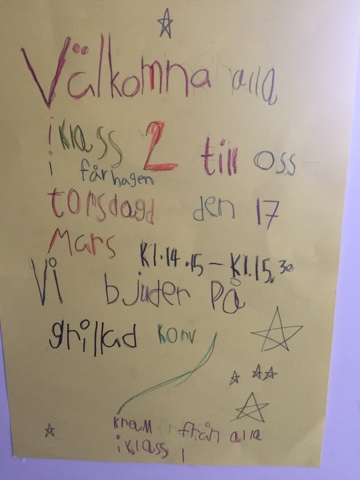 Välkomna alla
i klass 2 till oss
i fårhagen
torsdagd den 17
Mars Kl.14.15 – Kl.15.30
Vi bjuder på
grillad korv
kram från alla
i klass 1